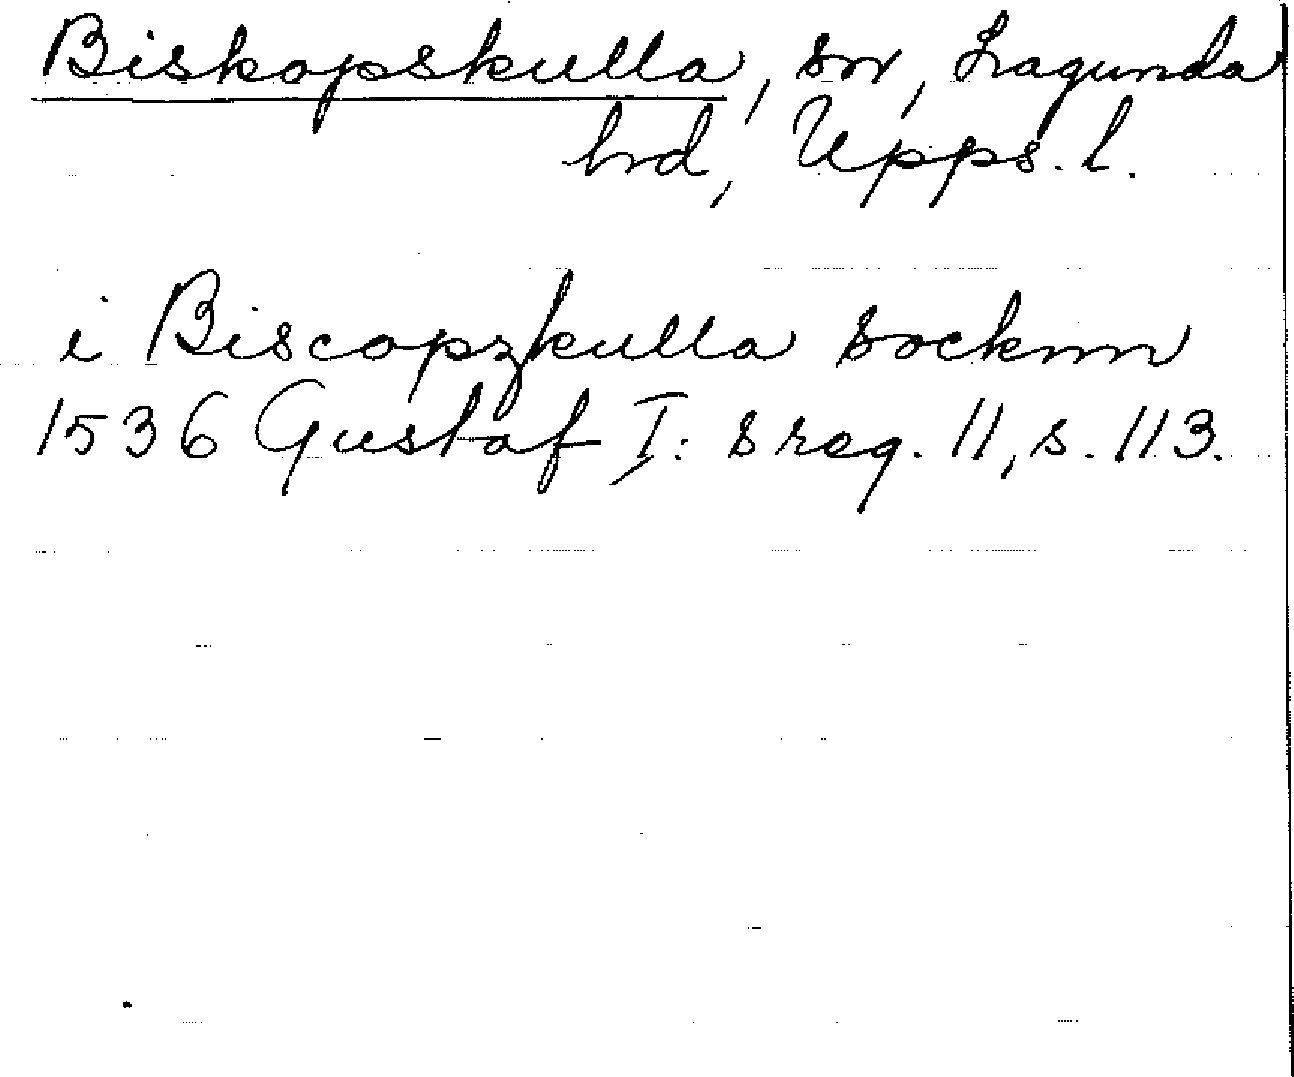 Biskopskulla, sn, Lagunda
hd, Upps. l.
i Biscopzkulla Socknn
1536 Gustaf I:s reg. 11, s. 113.